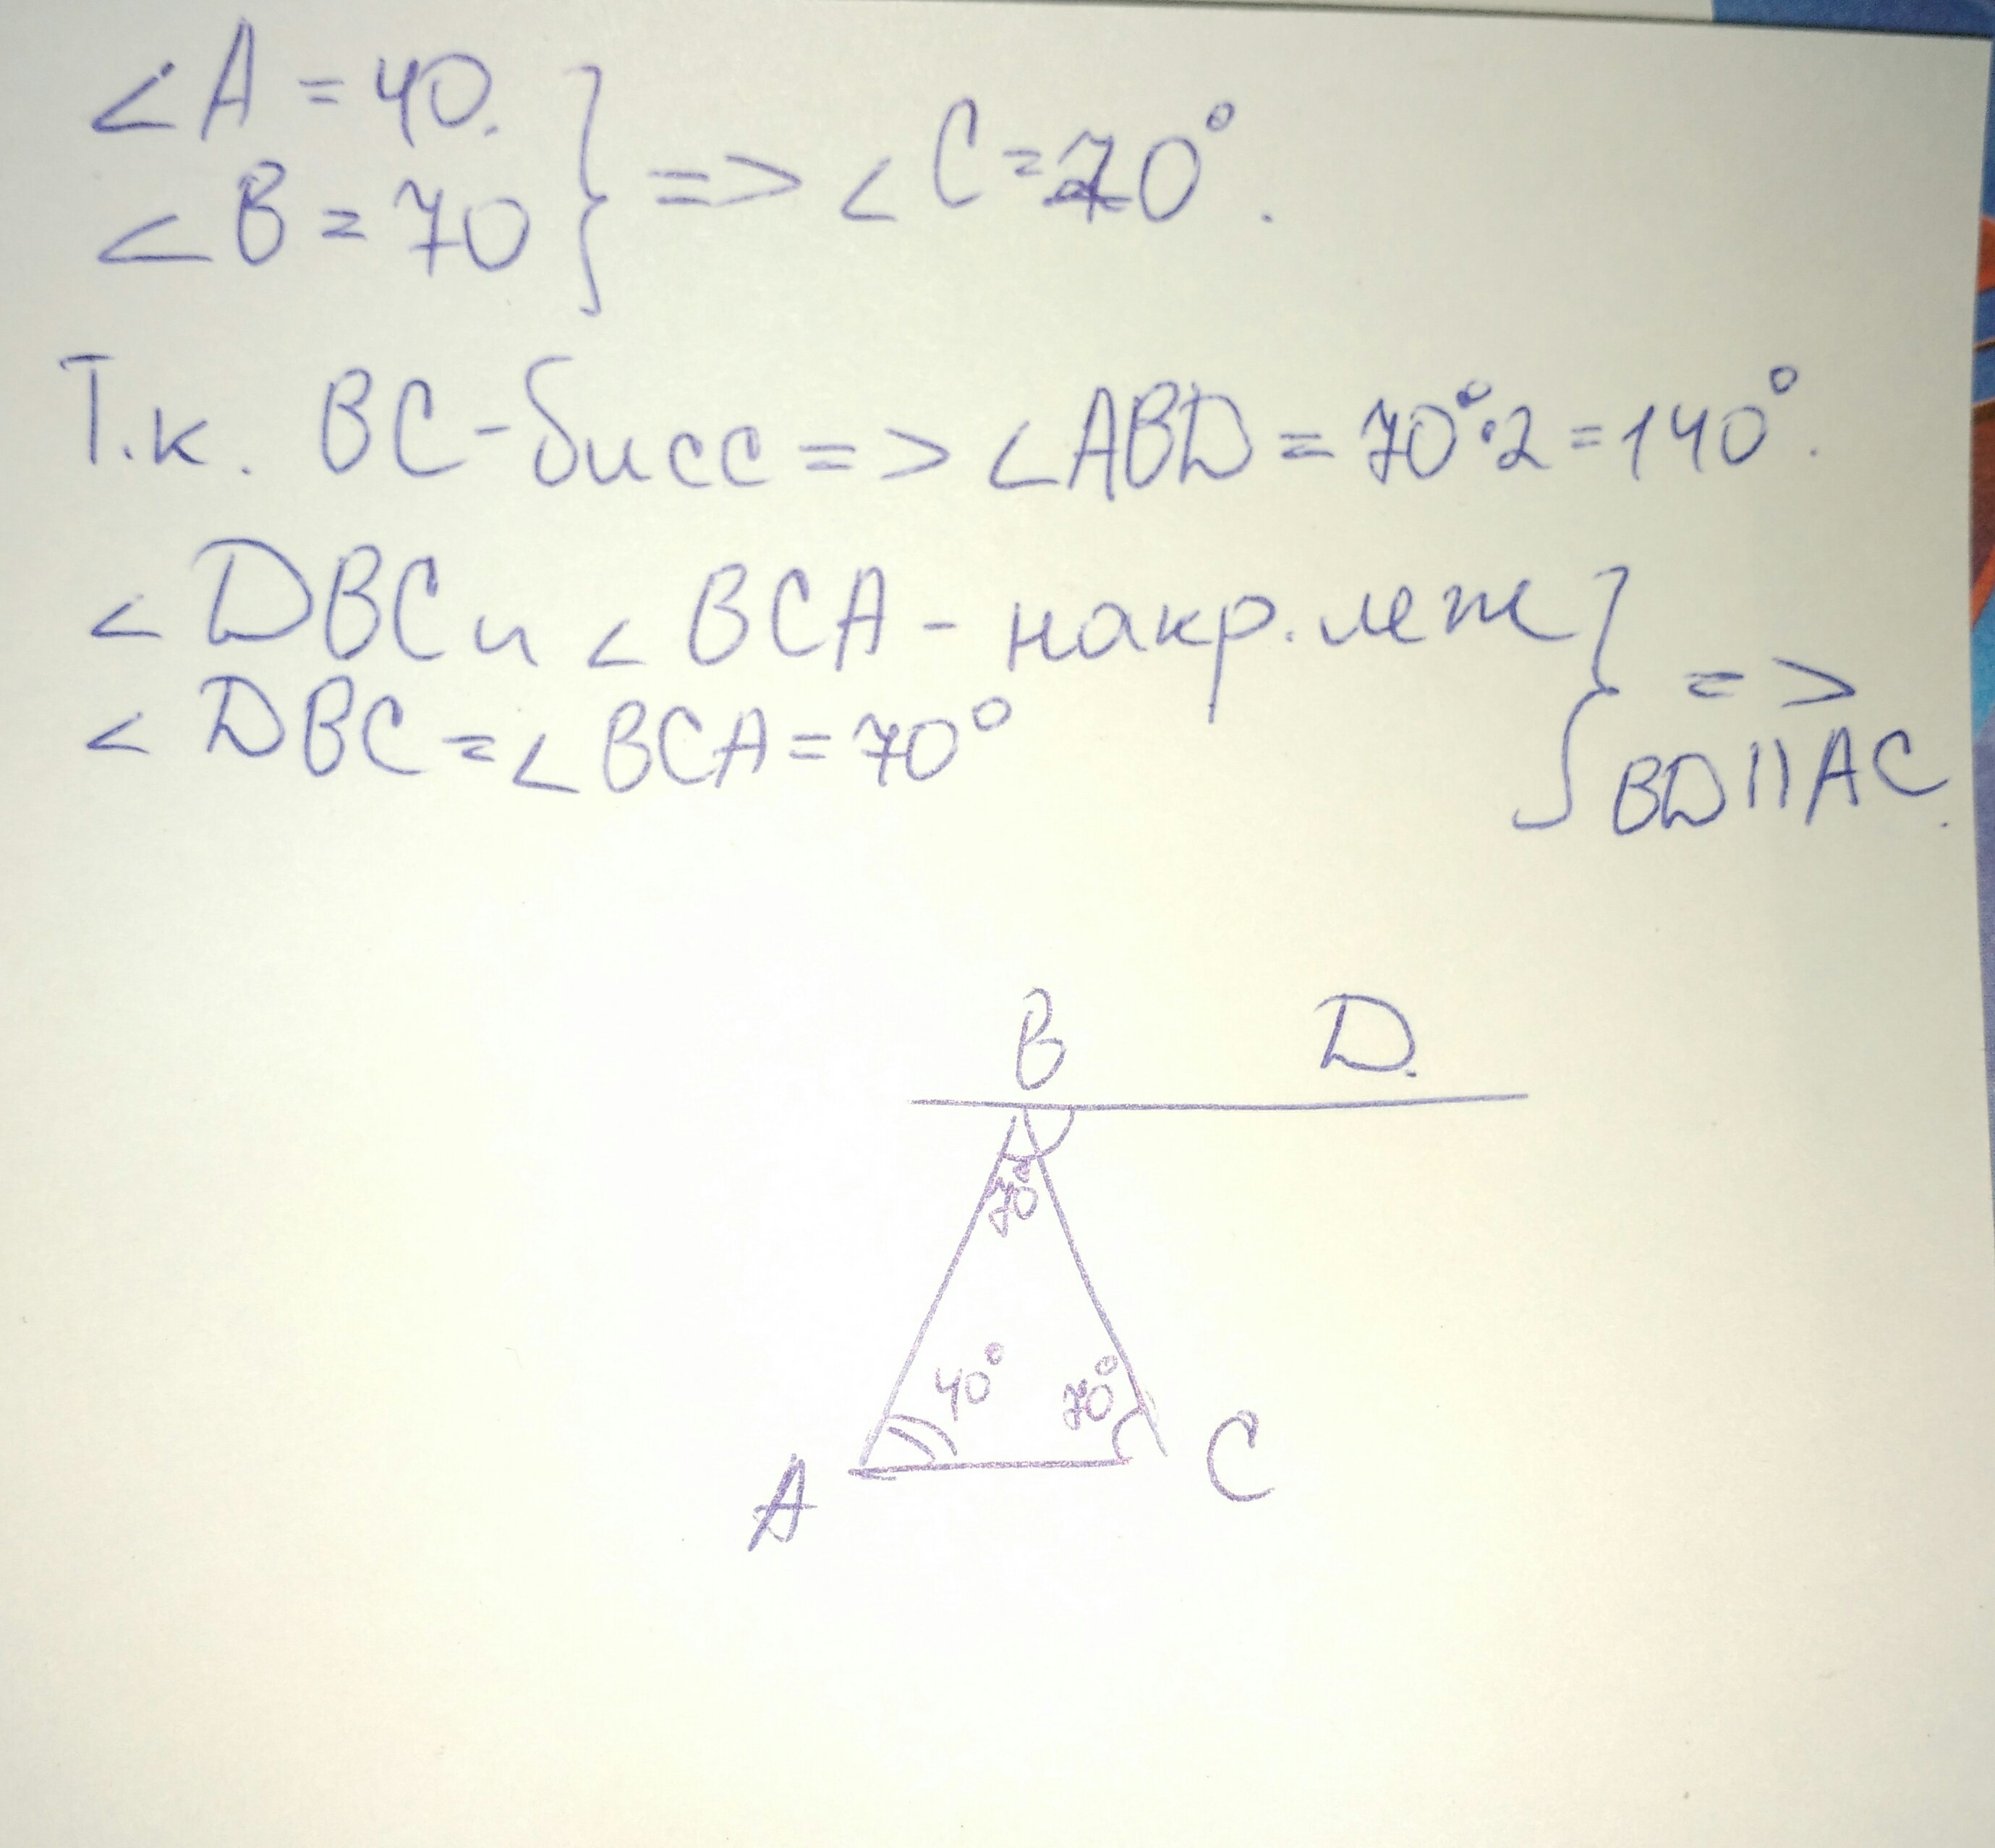 ∠A = 40.
∠B = 70 } => ∠C = 70°.
Т.к. BC-бисс => ∠ABD = 70°·2 = 140°.
∠DBC и ∠BCA - накр. леж
∠DBC = ∠BCA = 70° } =>
BD || AC.
B D.
70°
40° 70°
A C